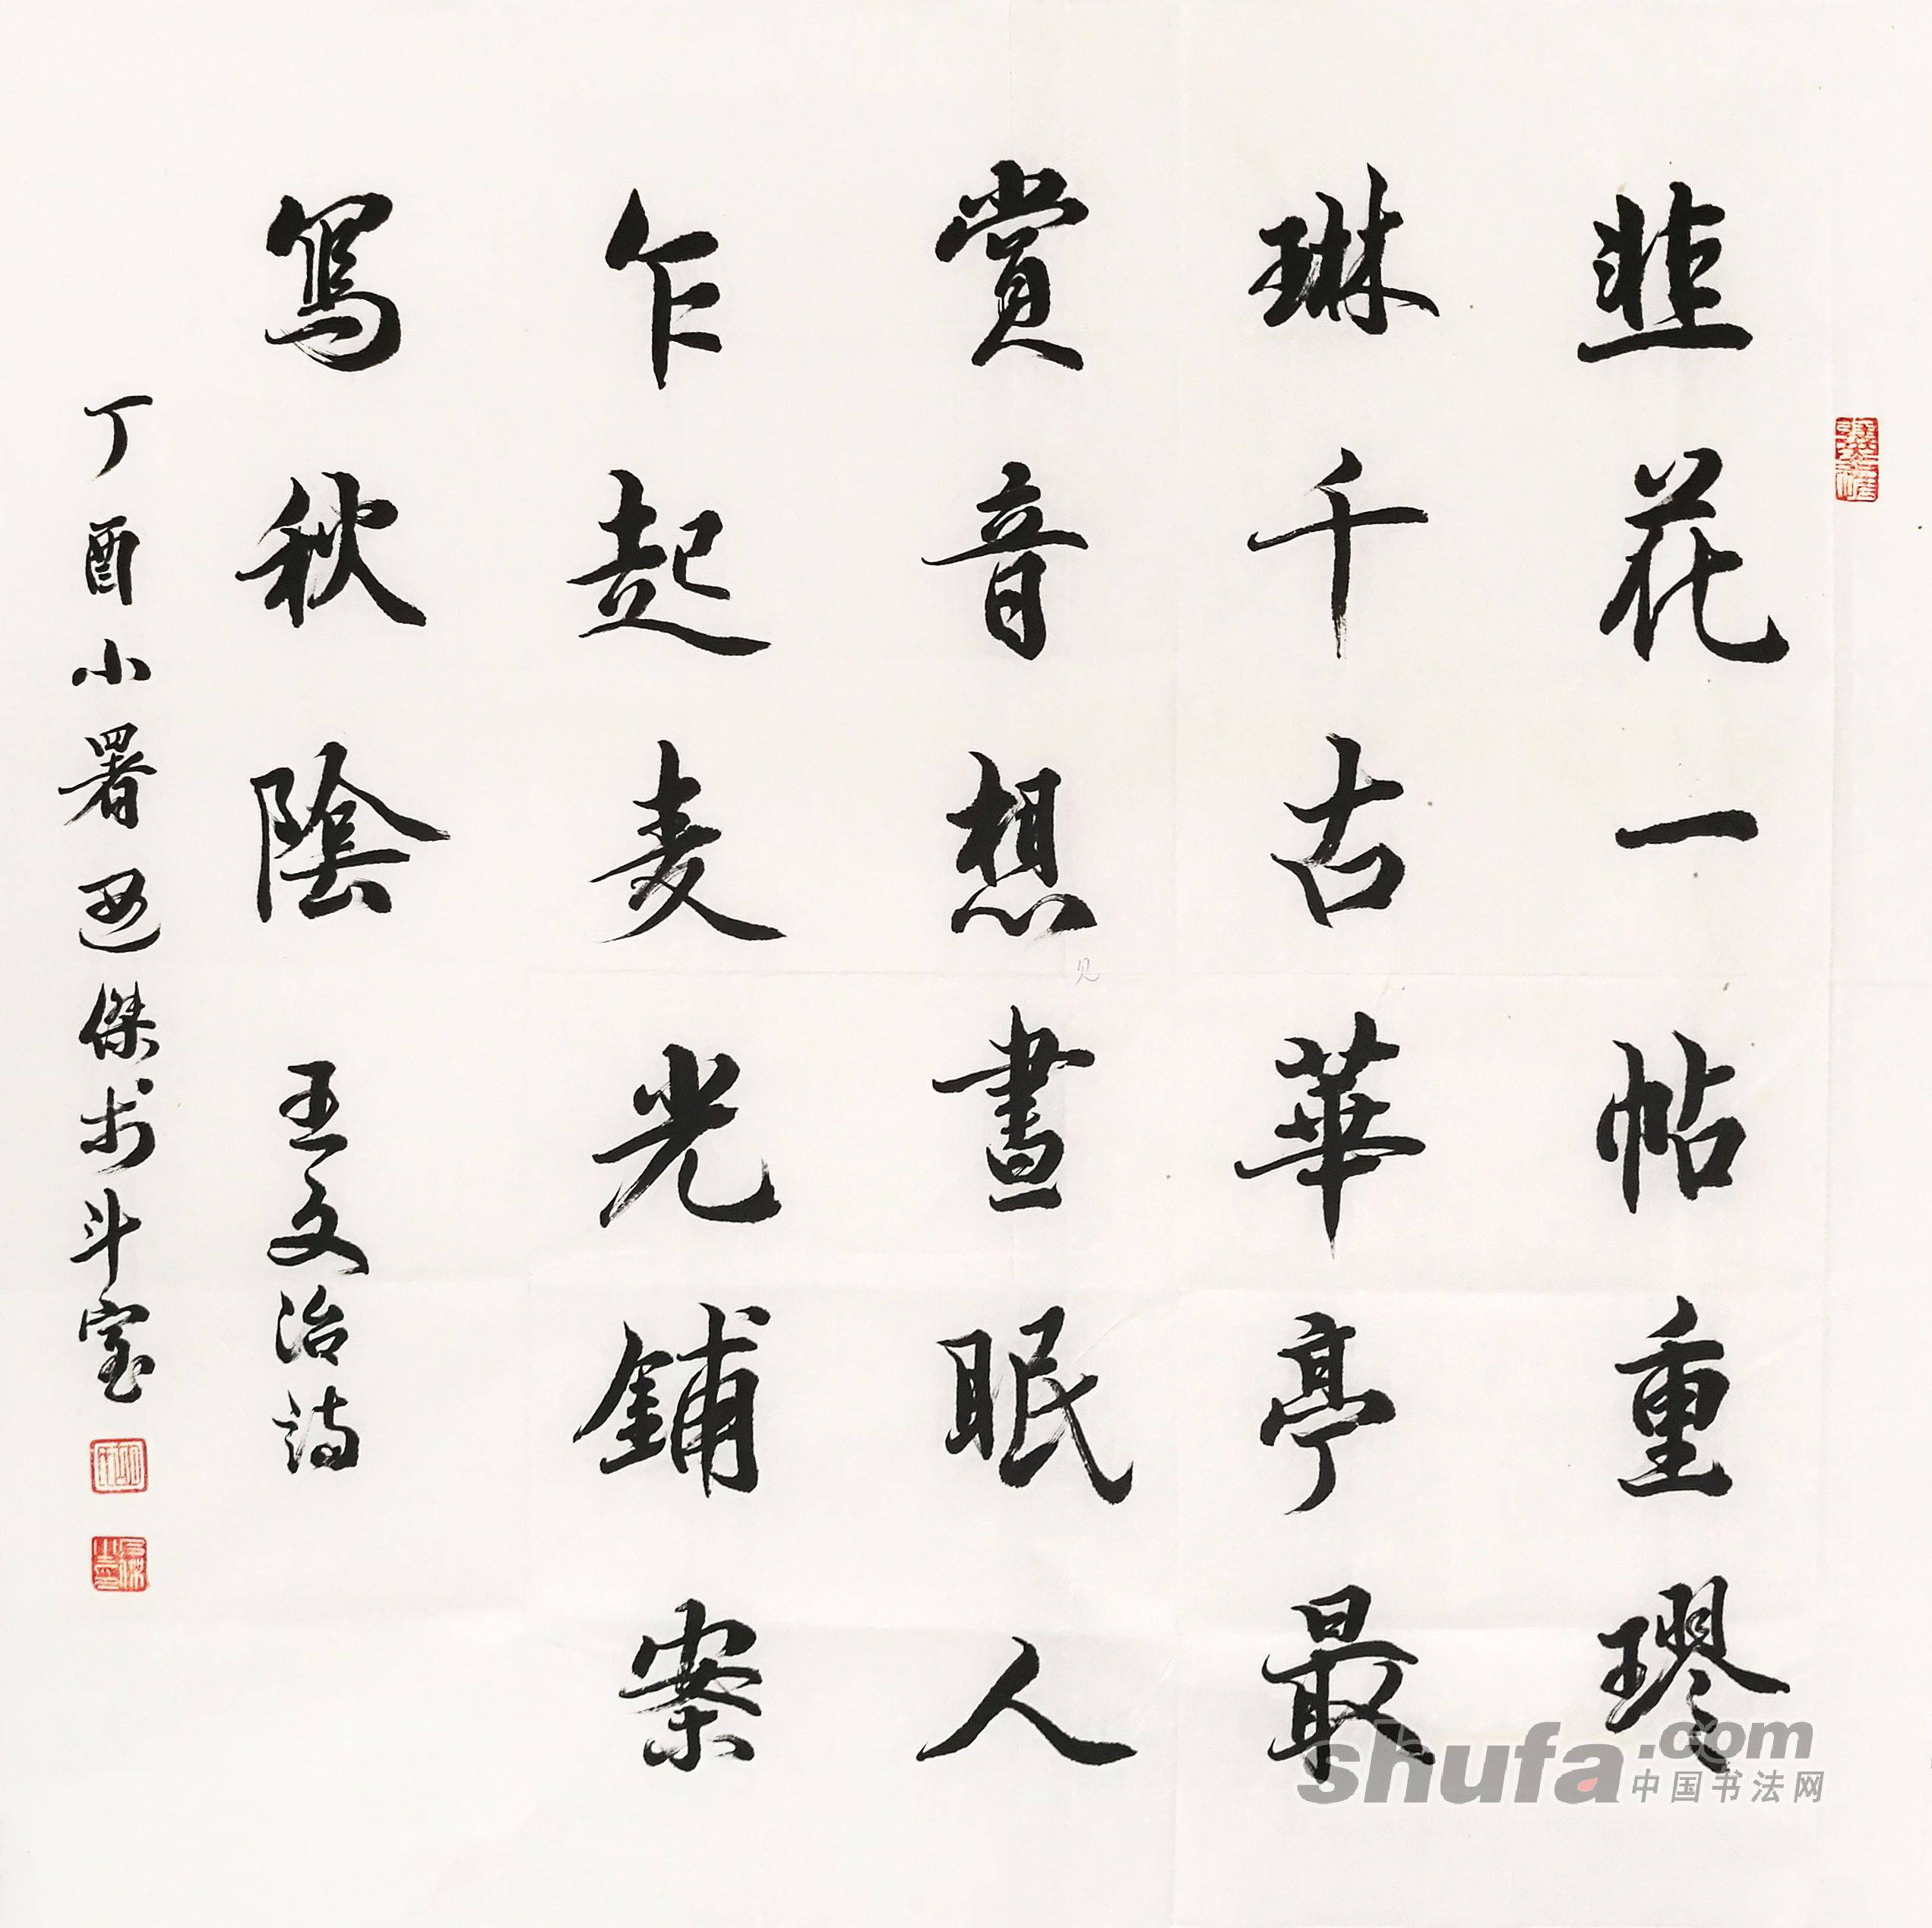 韭花一帖重璆
琳千古華亭最
賞音想晝眠人
乍起麦光鋪案
寫秋陰
王文治詩
丁酉小署
傑於斗室
見
shufa.com
中国书法网